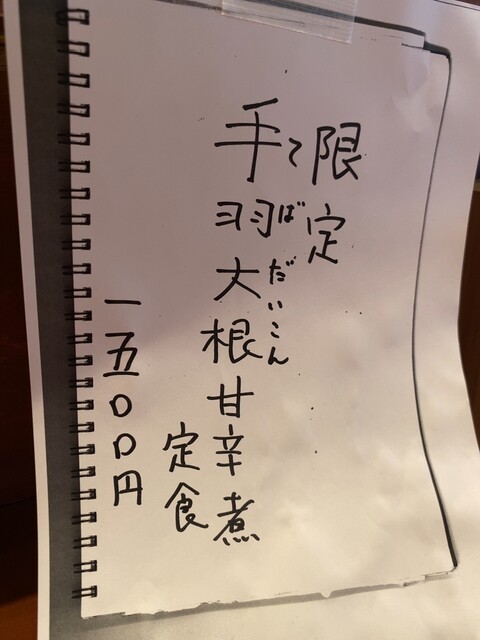 限定
てばだいこん
手羽大根甘辛煮
定食
一五〇〇円